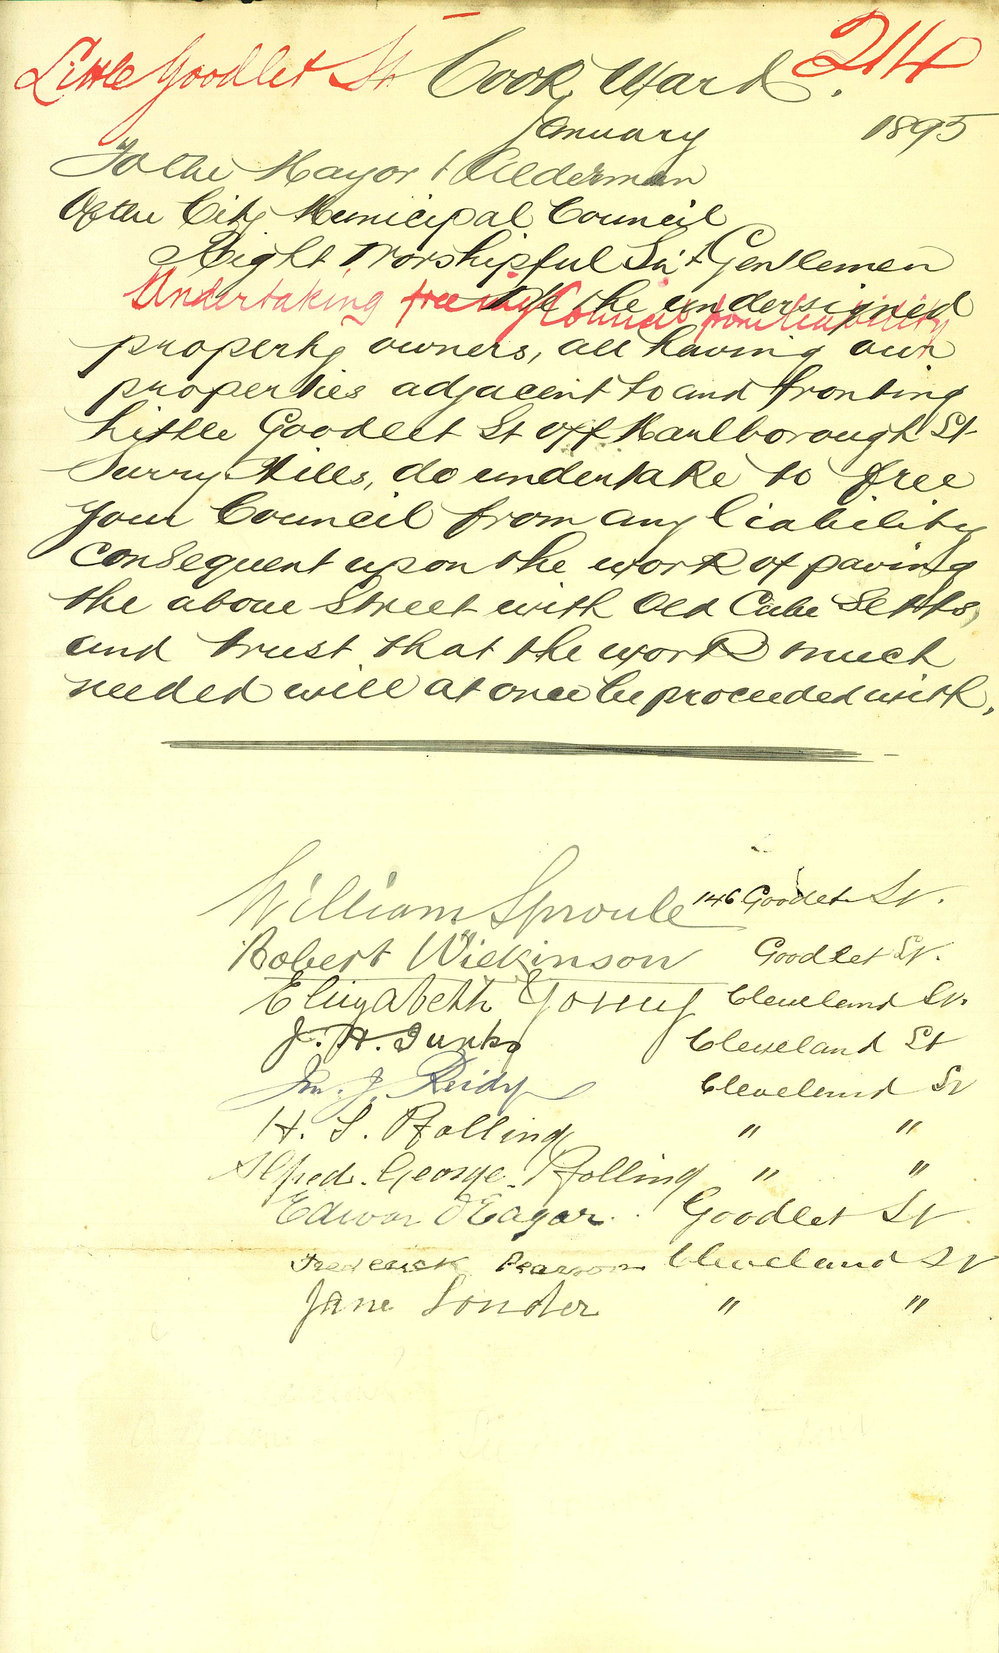 Little Goodlet St Cook Ward. 214
January 1895
To the Mayor & Aldermen
Of the City Municipal Council
Right Worshipful Sir & Gentlemen
Undertaking freeing Council from liability
We the undersigned
property owners, all having our
properties adjacent to and fronting
Little Goodlet St off Marlborough St
Surry Hills, do undertake to free
your Council from any liability
consequent upon the work of paving
the above Street with Old Cube Setts,
and trust that the work much
needed will at once be proceeded with.
William Sproule 146 Goodlet St.
Robert Wilkinson Goodlet St.
Elizabeth Young Cleveland St.
J. H. Cleveland St
Jm. J. Reidy Cleveland St
H. S. Rolling " "
Alfred. George. Rolling " "
Edward Eagar. Goodlet St
Frederick Pearson Cleveland St
Jane " "